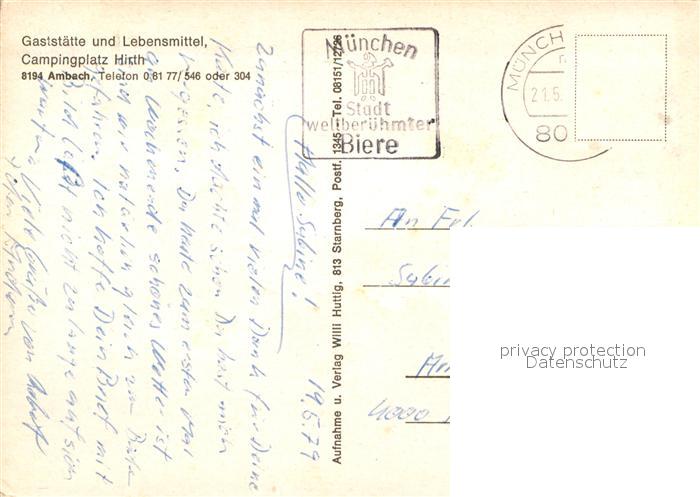 Gaststätte und Lebensmittel,
Campingplatz Hirth
8194 Ambach, Telefon 0 81 77/ 546 oder 304
München
Stadt
weltberühmter
Biere
MÜNCH
21.5.
80
Aufnahme u. Verlag Willi Huttig, 813 Starnberg, Postf. 1345 — Tel. 08151/12726
19.5.79
Hallo Sabine!
Zunächst einmal vielen Dank für Deine
Karte, ich dachte schon Du hast mich
vergessen. Da heute zum ersten Mal
am Wochenende schönes Wetter ist
ich natürlich gleich zum
gefahren. Ich hoffe Dein Brief mit
läßt nicht zu lange auf sich
warten. Viele Grüße von
An Frl.
Sabin
4000
privacy protection
Datenschutz